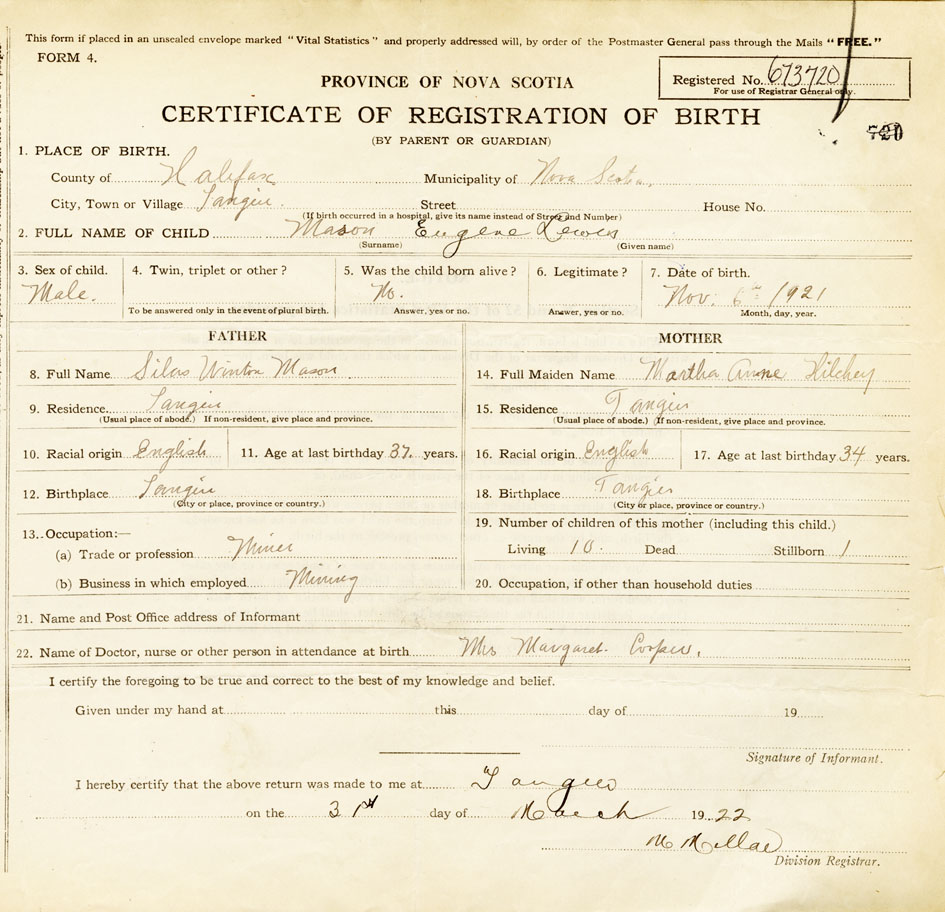 This form if placed in an unsealed envelope marked "Vital Statistics" and properly addressed will, by order of the Postmaster General pass through the Mails "FREE."
FORM 4.
PROVINCE OF NOVA SCOTIA
Registered No. 673720
For use of Registrar General only.
CERTIFICATE OF REGISTRATION OF BIRTH
720
(BY PARENT OR GUARDIAN)
1. PLACE OF BIRTH.
County of Halifax Municipality of Nova Scotia.
City, Town or Village Tangier. Street House No.
(If birth occurred in a hospital, give its name instead of Street and Number)
2. FULL NAME OF CHILD Mason Eugene
(Surname) (Given name)
3. Sex of child. 4. Twin, triplet or other? 5. Was the child born alive? 6. Legitimate? 7. Date of birth.
Male. No. Nov. 6th 1921
To be answered only in the event of plural birth. Answer, yes or no. Answer, yes or no. Month, day, year.
FATHER MOTHER
8. Full Name Silas Winton Mason 14. Full Maiden Name Martha Anne Hilchey
9. Residence. Tangier 15. Residence Tangier
(Usual place of abode.) If non-resident, give place and province. (Usual place of abode.) If non-resident, give place and province.
10. Racial origin English 11. Age at last birthday 37. years. 16. Racial origin English 17. Age at last birthday 34 years.
12. Birthplace Tangier 18. Birthplace Tangier
(City or place, province or country.) (City or place, province or country.)
13. Occupation:— 19. Number of children of this mother (including this child.)
(a) Trade or profession Miner Living 10. Dead Stillborn 1
(b) Business in which employed Mining 20. Occupation, if other than household duties
21. Name and Post Office address of Informant
22. Name of Doctor, nurse or other person in attendance at birth Mrs Margaret Cooper.
I certify the foregoing to be true and correct to the best of my knowledge and belief.
Given under my hand at this day of 19
Signature of Informant.
I hereby certify that the above return was made to me at Tangier
on the 31st day of March 1922
Division Registrar.